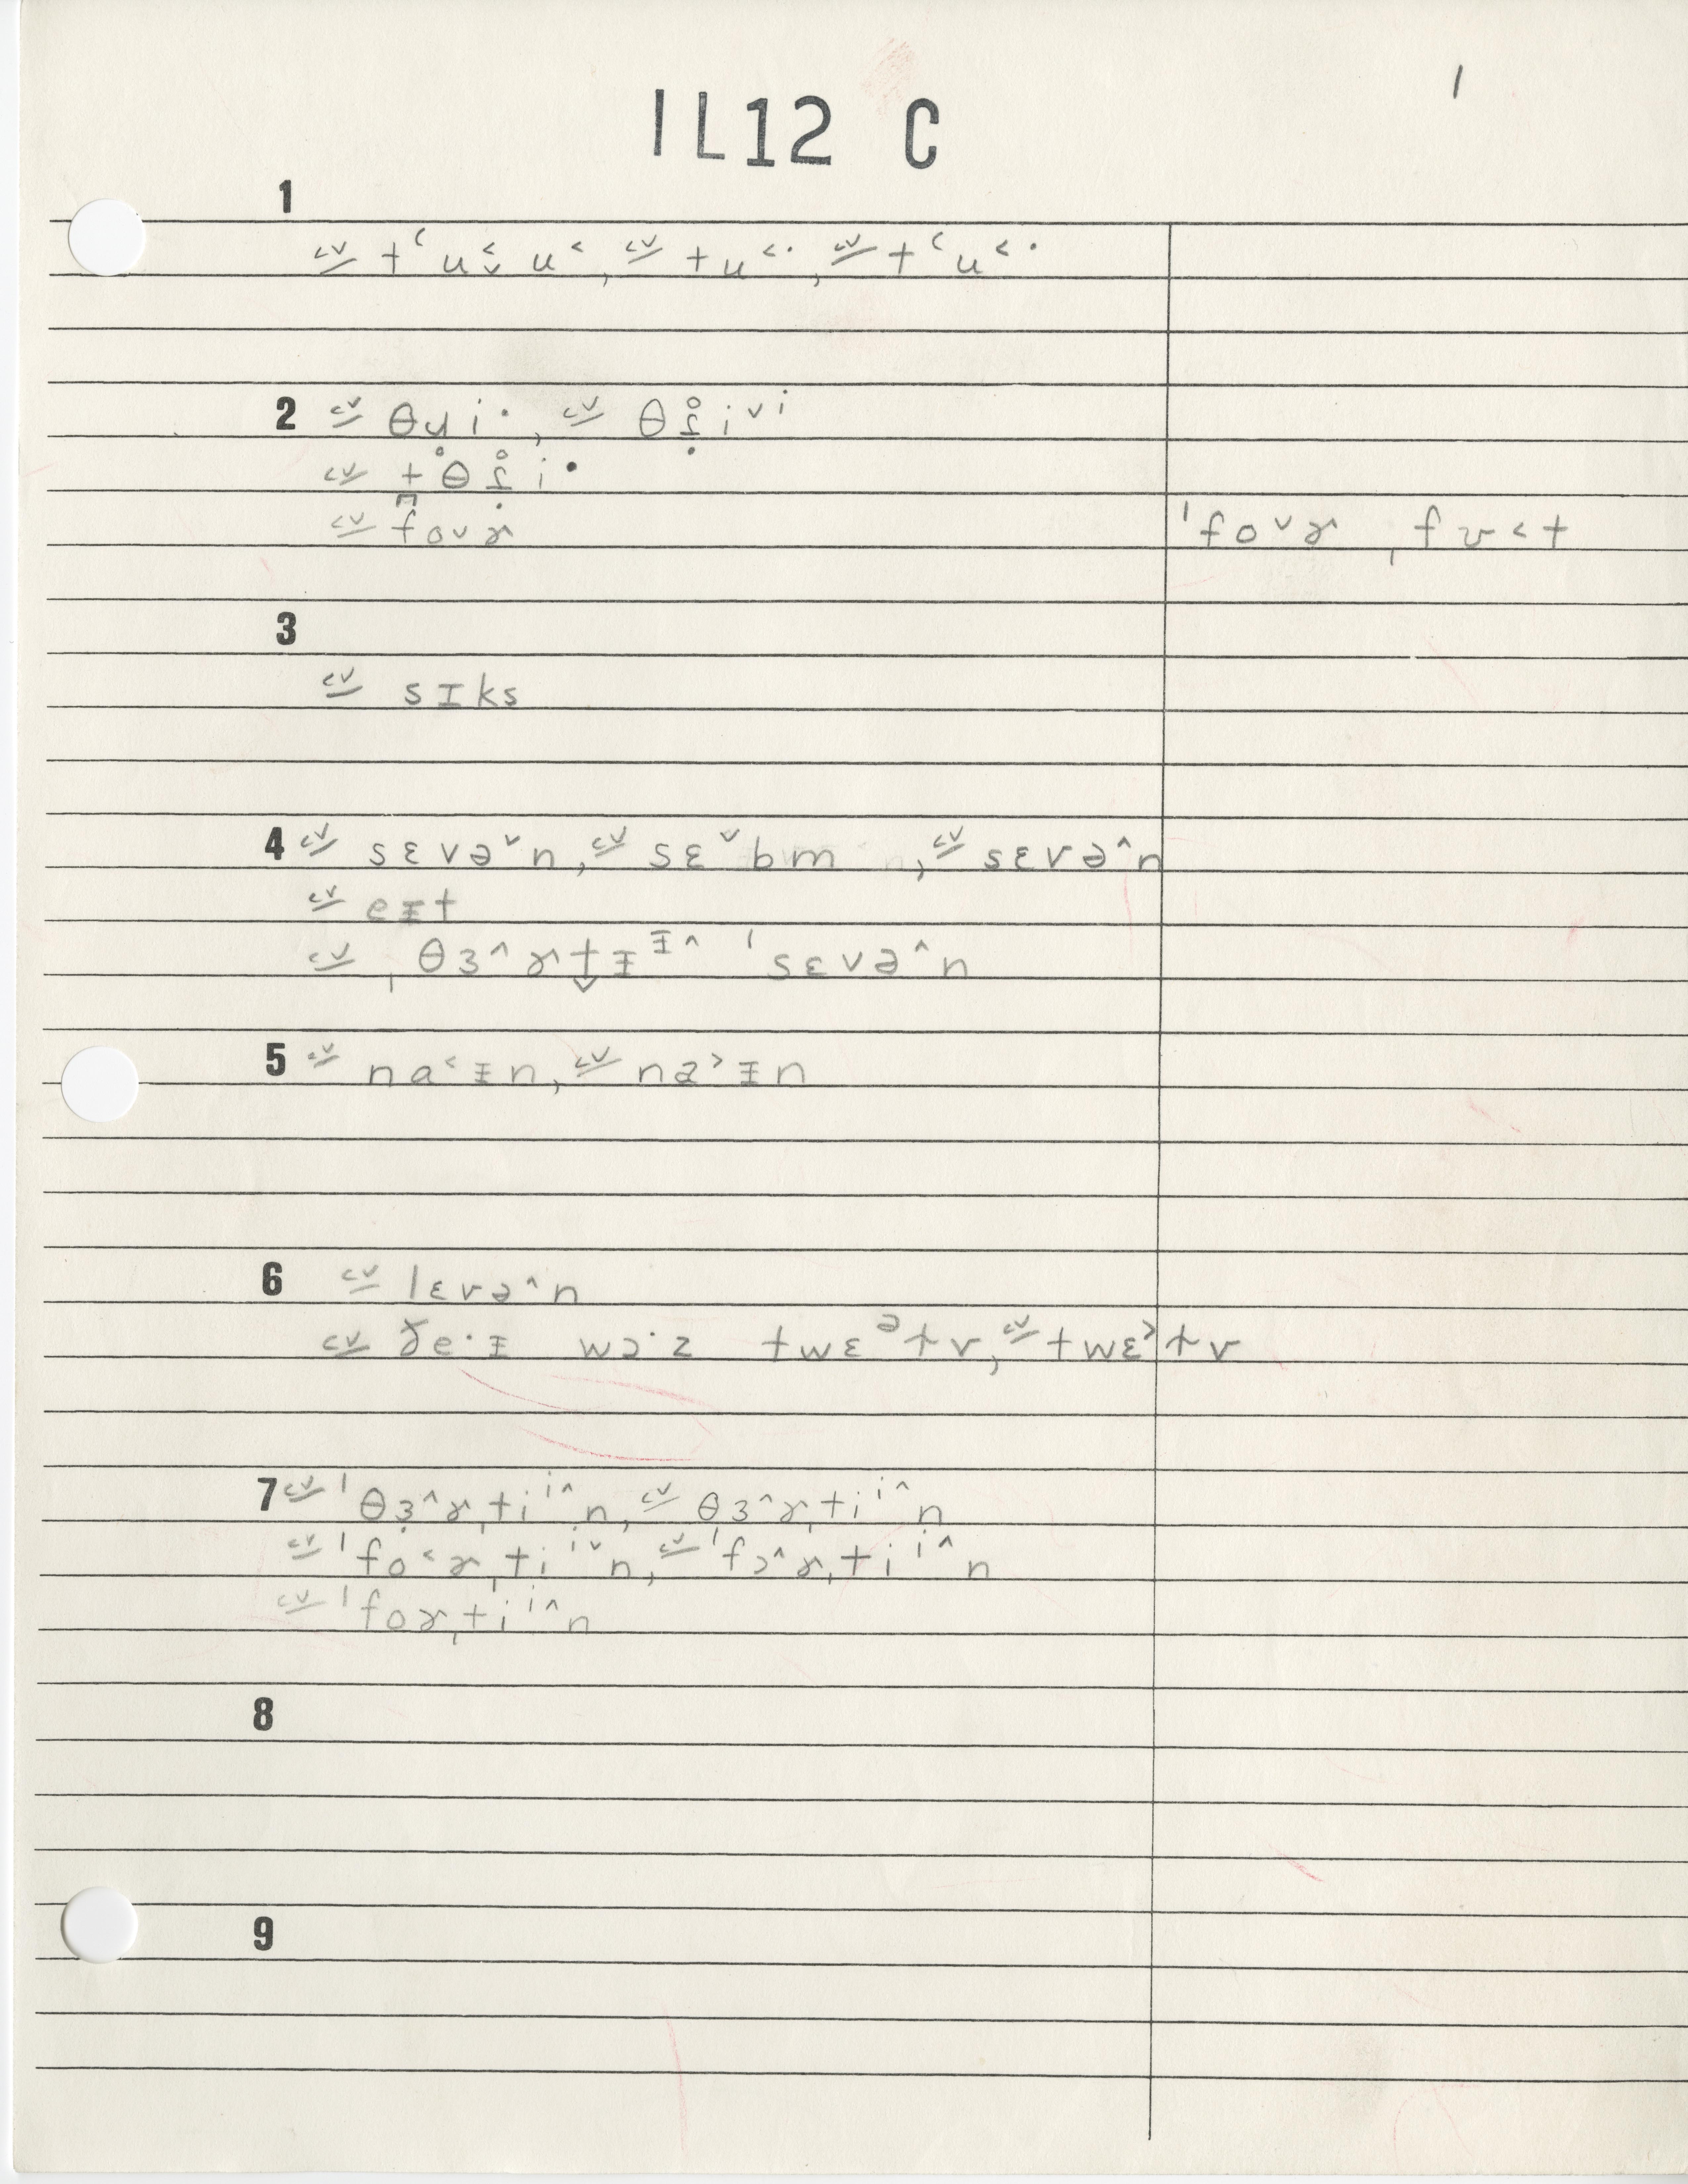 1
IL12 C
1
cv tʻu˂˅ u˂, cv tu˂·, cv tʻu˂·
2 cv θɹi·, cv θɹ̥̣i˅ⁱ
cv t̪θ̥ɹ̥̣i·
cv foʊɚ ˈfoʊɚ, fʊ˂t
3
cv sɪks
4 cv sɛvə˅n, cv sɛ˅bm, cv sɛvə^n
cv eᵻt
cv ˌθɜ^ɚt̬ᵻᵻ^ ˈsɛvə^n
5 cv na˂ᵻn, cv na˃ᵻn
6 cv lɛvə^n
cv ðe·ᵻ wɔ·z twɛᵊtv, cv twɛ˃tv
7 cv ˈθɜ^ɚˌtiⁱ^n, cv θɜ^ɚˌtiⁱ^n
cv ˈfo˂ɚˌtiⁱ˅n, cv ˈfɔ^ɚˌtiⁱ^n
cv ˈfoɚˌtiⁱ^n
8
9